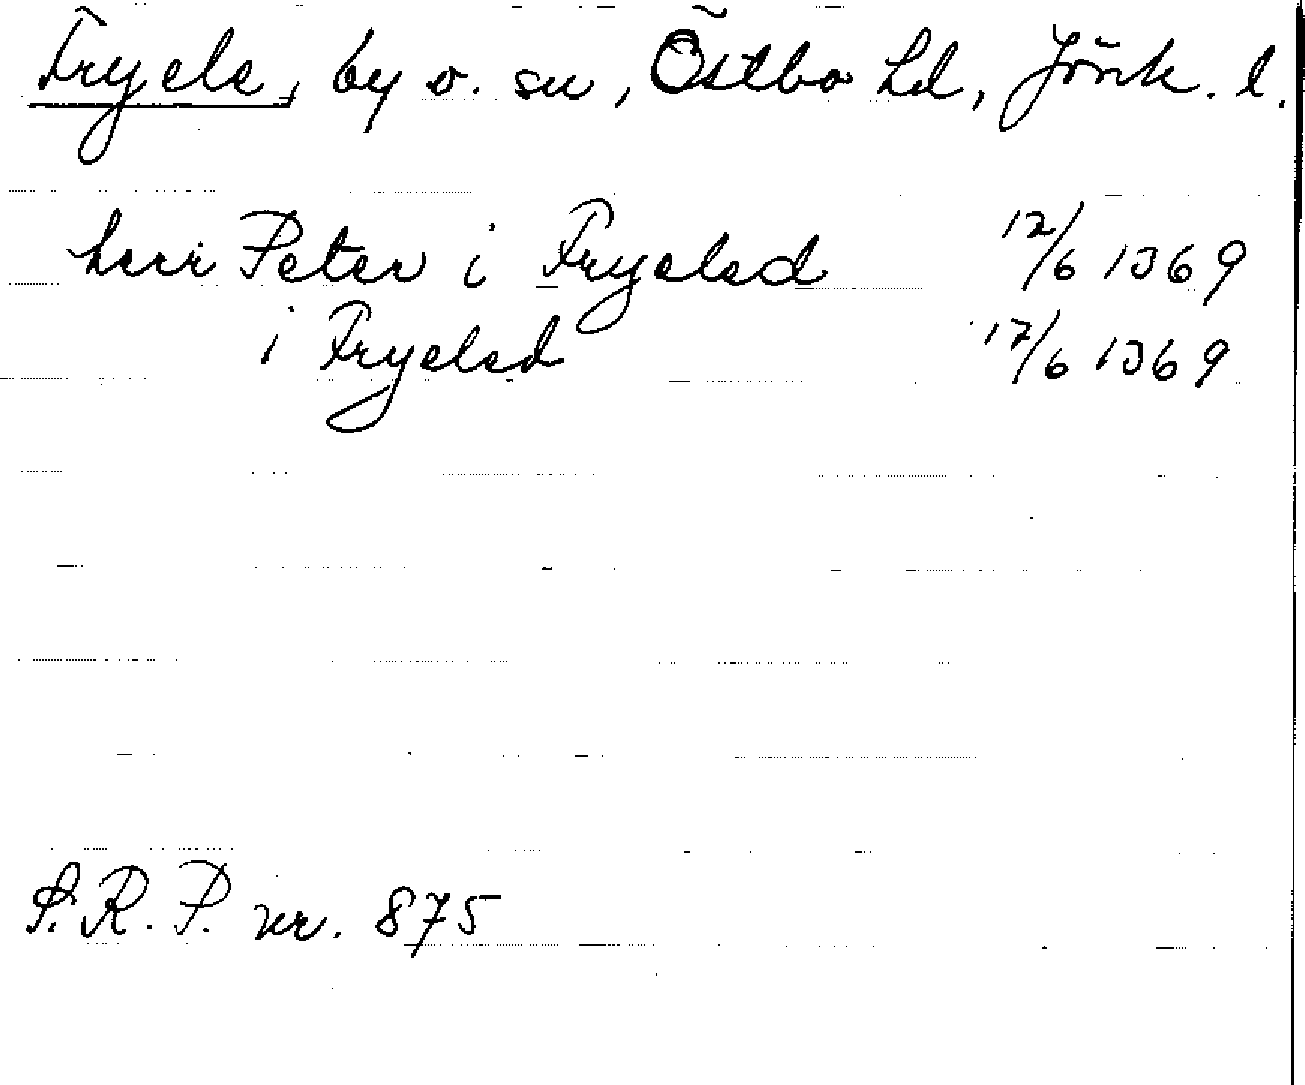 Fryele, by o. sn, Östbo hd, Jönk. l.
herr Peter i Fryeled 12/6 1369
i Fryeled 12/6 1369
S.R.P. nr. 875